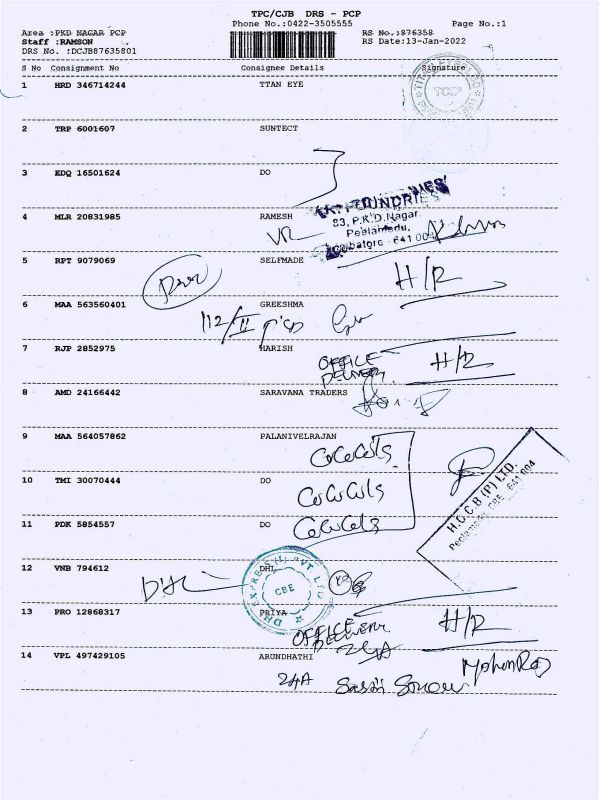 TPC/CJB DRS - PCP
Phone No.:0422-3505555
Page No.:1
Area :PKD NAGAR PCP
Staff :RAMSON
DRS No. :DCJB87635801
RS No.:876358
RS Date:13-Jan-2022
S No Consignment No Consignee Details Signature
1 HRD 346714244 TTAN EYE
TCCP
2 TRP 6001607 SUNTECT
3 EDQ 16501624 DO
FOUNDRIES
83, P.K.D.Nagar
Peelamedu,
641 004
4 MLR 20831985 RAMESH
5 RPT 9079069 SELFMADE
H/R
6 MAA 563560401 GREESHMA
112/II
7 RJP 2852975 HARISH
OFFICE
DELIVERY
H/R
8 AMD 24166442 SARAVANA TRADERS
9 MAA 564057862 PALANIVELRAJAN
10 TMI 30070444 DO
11 PDK 5854557 DO
H.C.C.B (P) LTD.
Peelamedu, CBE - 641 004
12 VNB 794612 DHL
CBE
13 PRO 12868317 PRIYA
OFFICE
DELIVERY
H/R
24A
14 VPL 497429105 ARUNDHATHI
24A